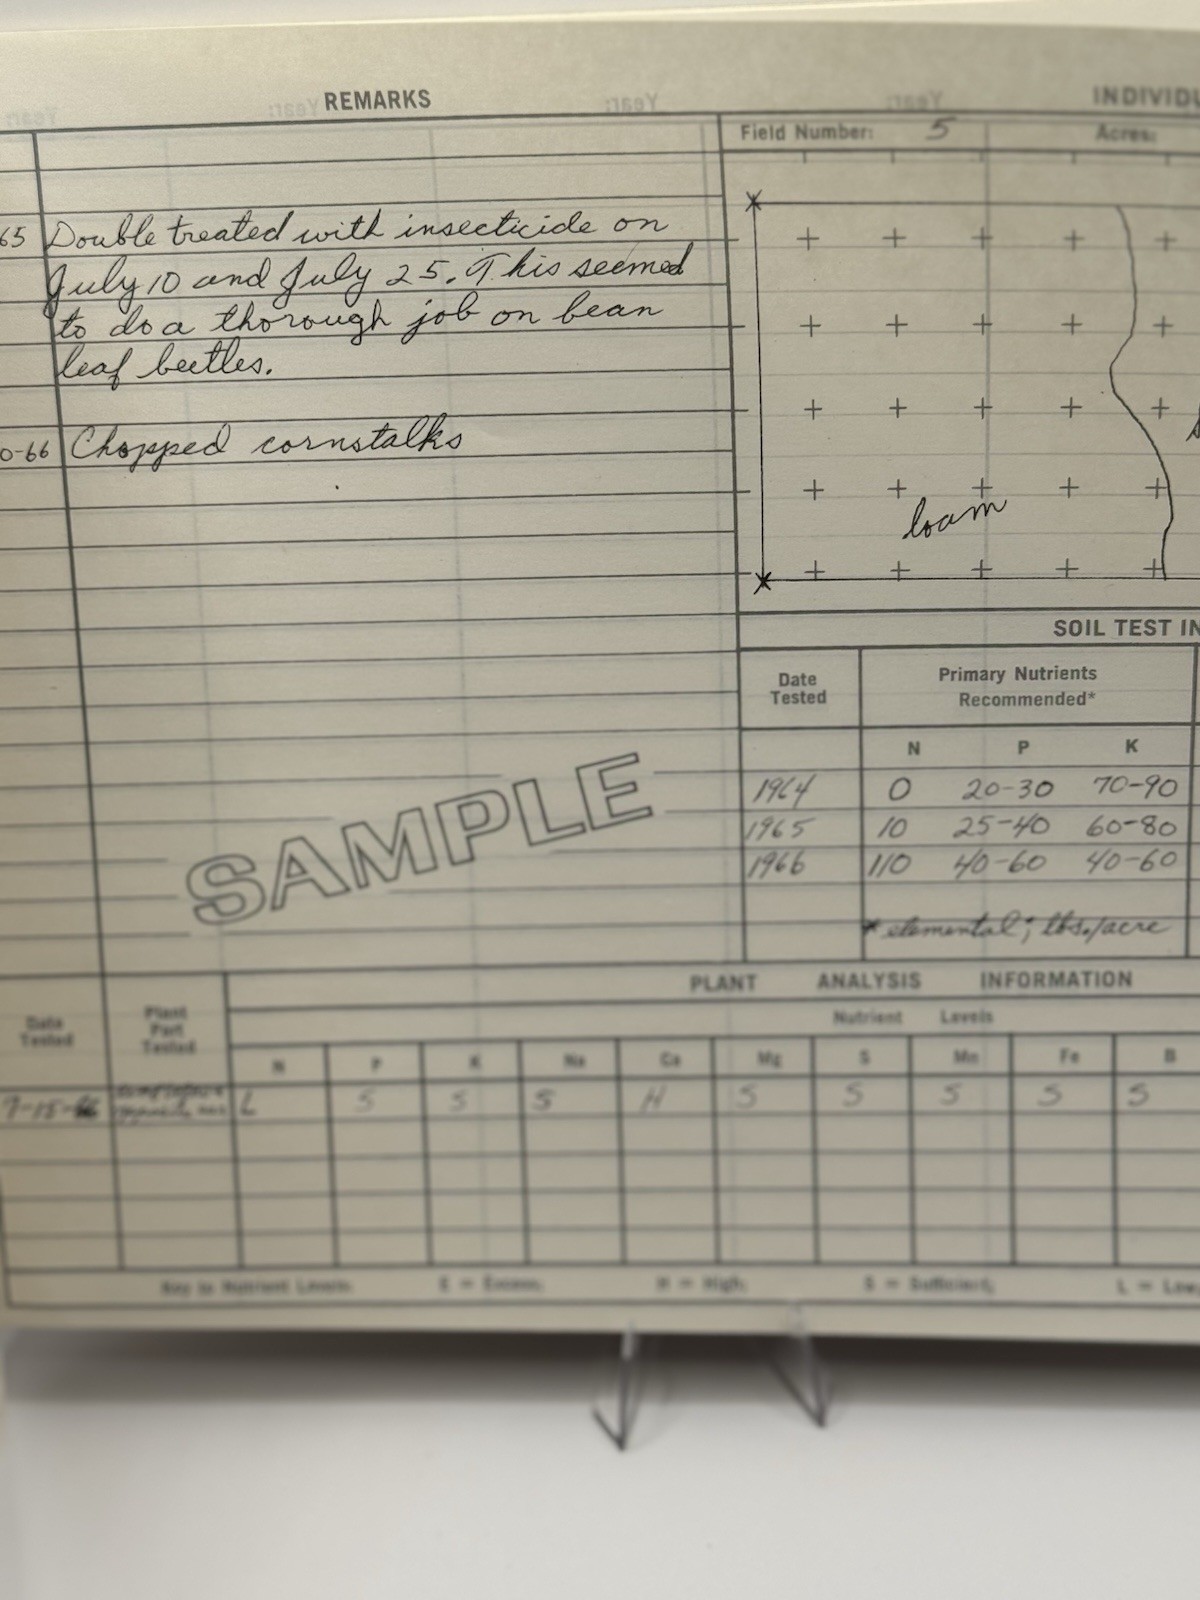 REMARKS
65 Double treated with insecticide on
July 10 and July 25. This seemed
to do a thorough job on bean
leaf beetles.
0-66 Chopped cornstalks
SAMPLE
INDIVIDU
Field Number: 5 Acres:
loam
SOIL TEST IN
Date Tested
Primary Nutrients
Recommended*
N P K
1964 0 20-30 70-90
1965 10 25-40 60-80
1966 110 40-60 40-60
* elemental; lbs./acre
PLANT ANALYSIS INFORMATION
Date Tested
Plant Part Tested
Nutrient Levels
N P K Na Ca Mg S Mn Fe B
L S S S H S S S S S
Key to Nutrient Levels: E = Excess; H = High; S = Sufficient; L = Low;